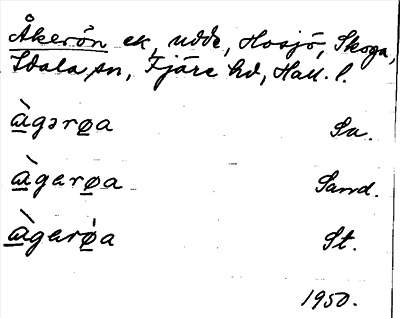 Åkerön ek, udde, Hosjö, Skoga,
Idala sn, Fjäre hd, Hall. l.
àgərøa Sa.
àgarøa Sand.
àgarø̀a St.
1950.